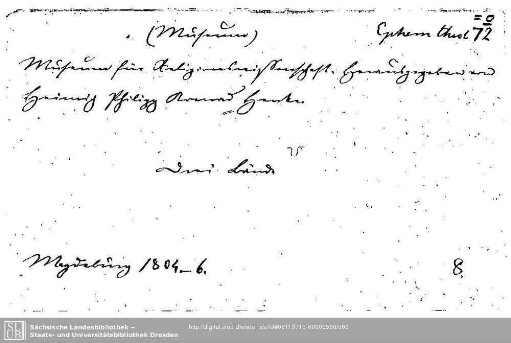 (Museum)
Ephem. theol. 72
Museum für Religionswissenschaft. Herausgegeben von
Heinrich Philipp Konrad Henke.
Drei Bände
Magdeburg 1804–6.
8.
Sächsische Landesbibliothek –
Staats- und Universitätsbibliothek Dresden